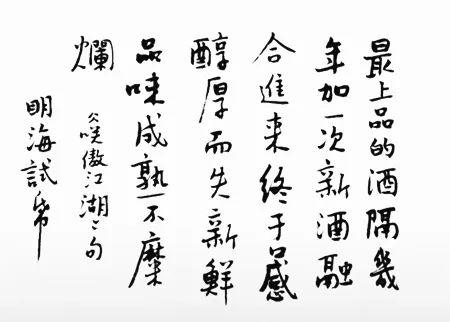 最上品的酒隔幾
年加一次新酒融
合進来终于口感
醇厚而失新鮮
品味成熟不糜
爛
咲傲江湖句
明海試帋